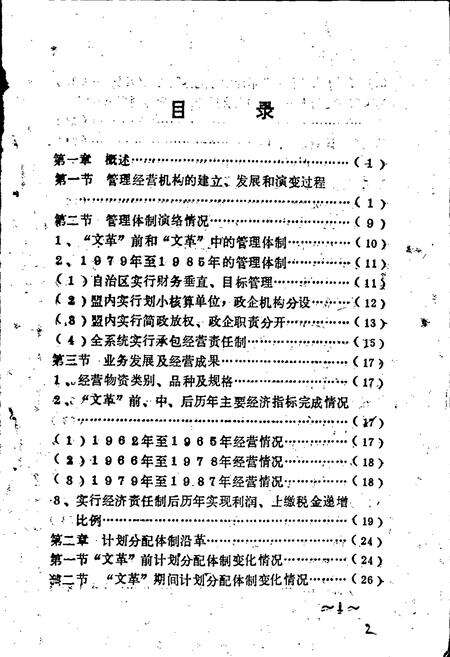 目 录
第一章 概述……………………………(1)
第一节 管理经营机构的建立、发展和演变过程
……………………………………(1)
第二节 管理体制演络情况………………(9)
1、“文革”前和“文革”中的管理体制…………(10)
2、1979年至1985年的管理体制…………(11)
(1)自治区实行财务垂直、目标管理…………(11)
(2)盟内实行划小核算单位,政企机构分设……(12)
(3)盟内实行简政放权、政企职责分开…………(13)
(4)全系统实行承包经营责任制………………(15)
第三节 业务发展及经营成果………………(17)
1、经营物资类别、品种及规格………………(17)
2、“文革”前、中、后历年主要经济指标完成情况
……………………………………(17)
(1)1962年至1965年经营情况…………(17)
(2)1966年至1978年经营情况…………(18)
(3)1979年至1987年经营情况…………(18)
3、实行经济责任制后历年实现利润、上缴税金递增
比例……………………………………(19)
第二章 计划分配体制沿革…………………(24)
第一节“文革”前计划分配体制变化情况………(24)
第二节 “文革”期间计划分配体制变化情况………(26)
~1~
2